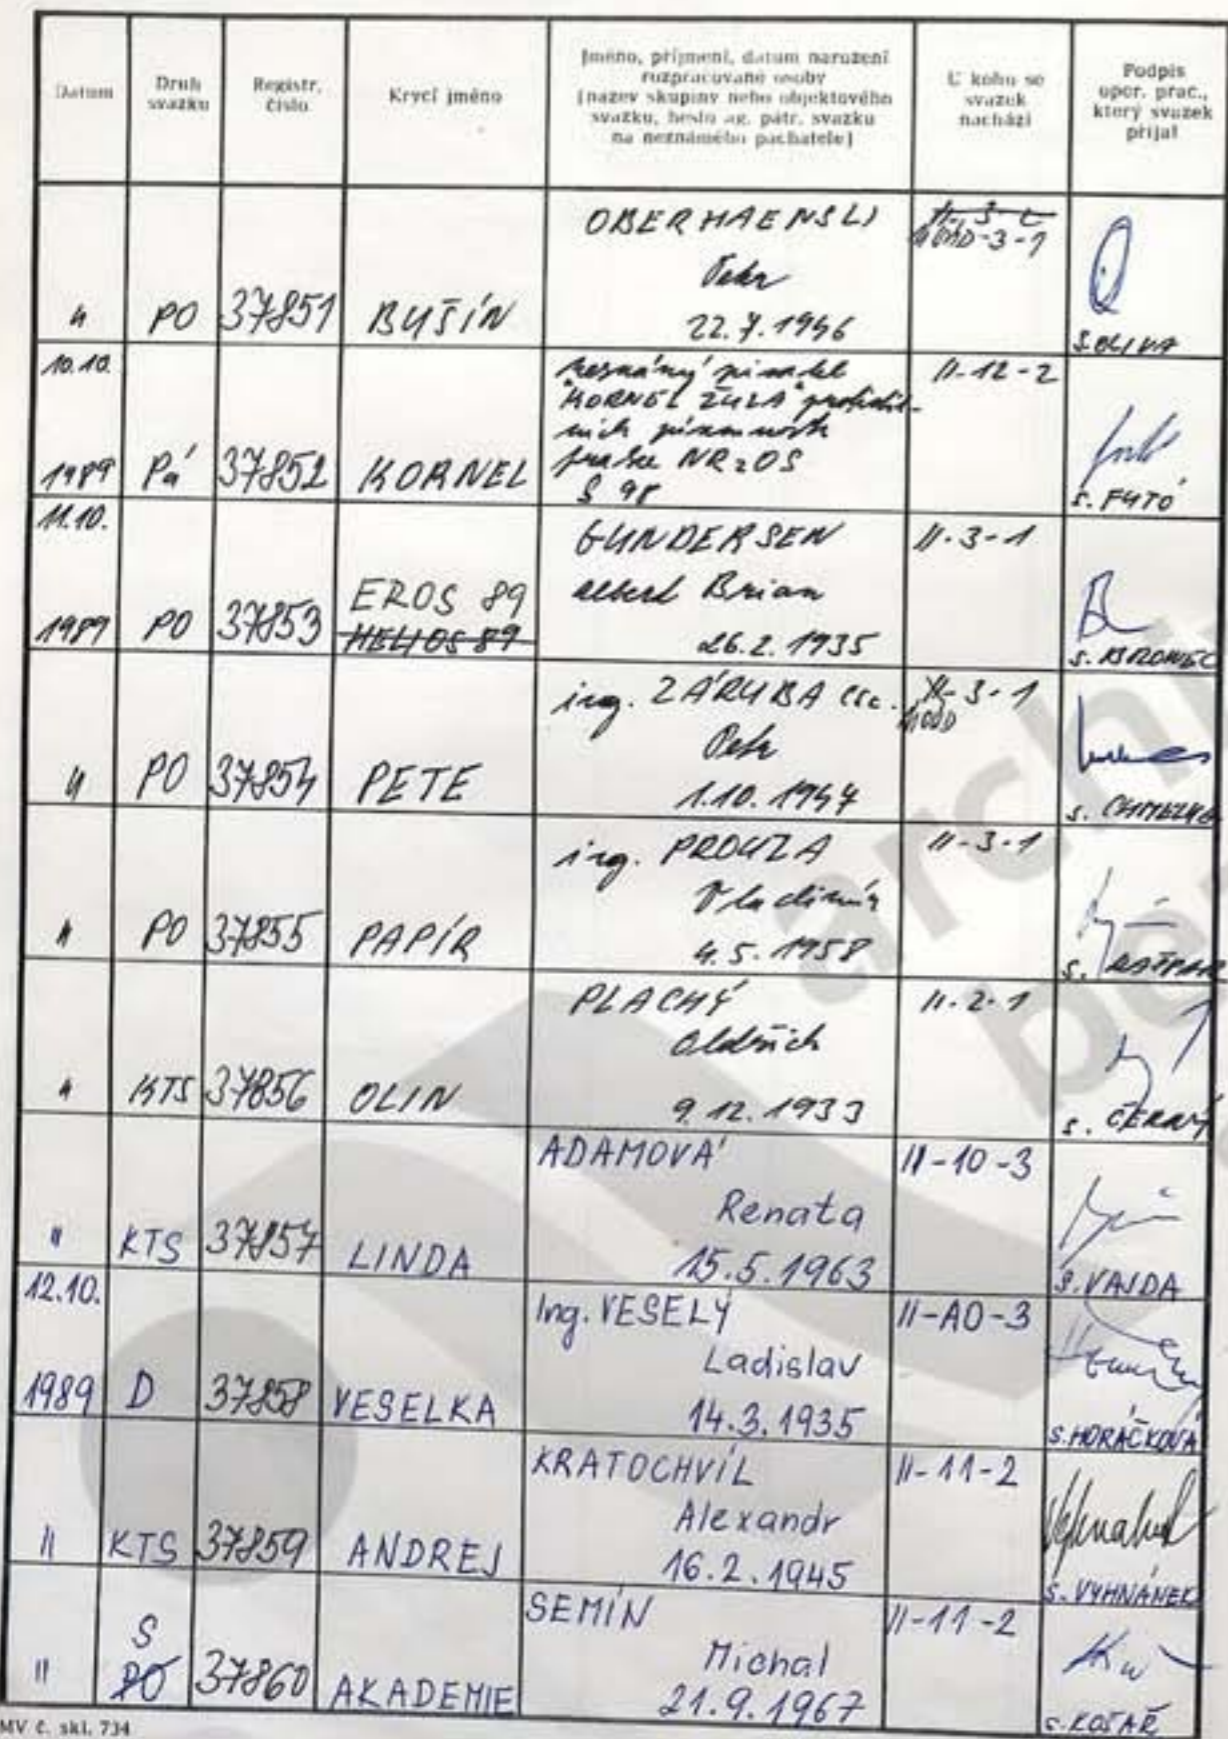 Datum
Druh svazku
Registr. číslo
Krycí jméno
Jméno, příjmení, datum narození
rozpracované osoby
(název skupiny nebo objektového
svazku, heslo ag. pátr. svazku
na neznámého pachatele)
U koho se
svazek
nachází
Podpis
oper. prac.,
který svazek
přijal
OBERHAENSLI
Petr
22.7.1946
" PO 37851 BUŠÍN
S. OLIVA
10.10.
1989 Pá 37852 KORNEL
neznámý pisatel
"KORNEL ŽULA"
§ 98
II-12-2
s. FUTÓ
11.10.
1989 PO 37853 EROS 89
HELIOS 89
GUNDERSEN
Albert Brian
26.2.1935
II-3-1
" PO 37854 PETE
ing. ZÁRUBA CSc.
Petr
1.10.1947
" PO 37855 PAPÍR
ing. PROUZA
Vladimír
4.5.1958
II-3-1
" KTS 37856 OLIN
PLACHÝ
Oldřich
9.12.1933
II-2-1
s. ČERNÝ
" KTS 37857 LINDA
ADAMOVÁ
Renata
15.5.1963
II-10-3
S. VAJDA
12.10.
1989 D 37858 VESELKA
Ing. VESELÝ
Ladislav
14.3.1935
II-AO-3
s. HORÁČKOVÁ
" KTS 37859 ANDREJ
KRATOCHVÍL
Alexandr
16.2.1945
II-11-2
s. VYHNÁNEK
S
" PO 37860 AKADEMIE
SEMÍN
Michal
21.9.1967
II-11-2
s. KOŠAŘ
MV č. skl. 734